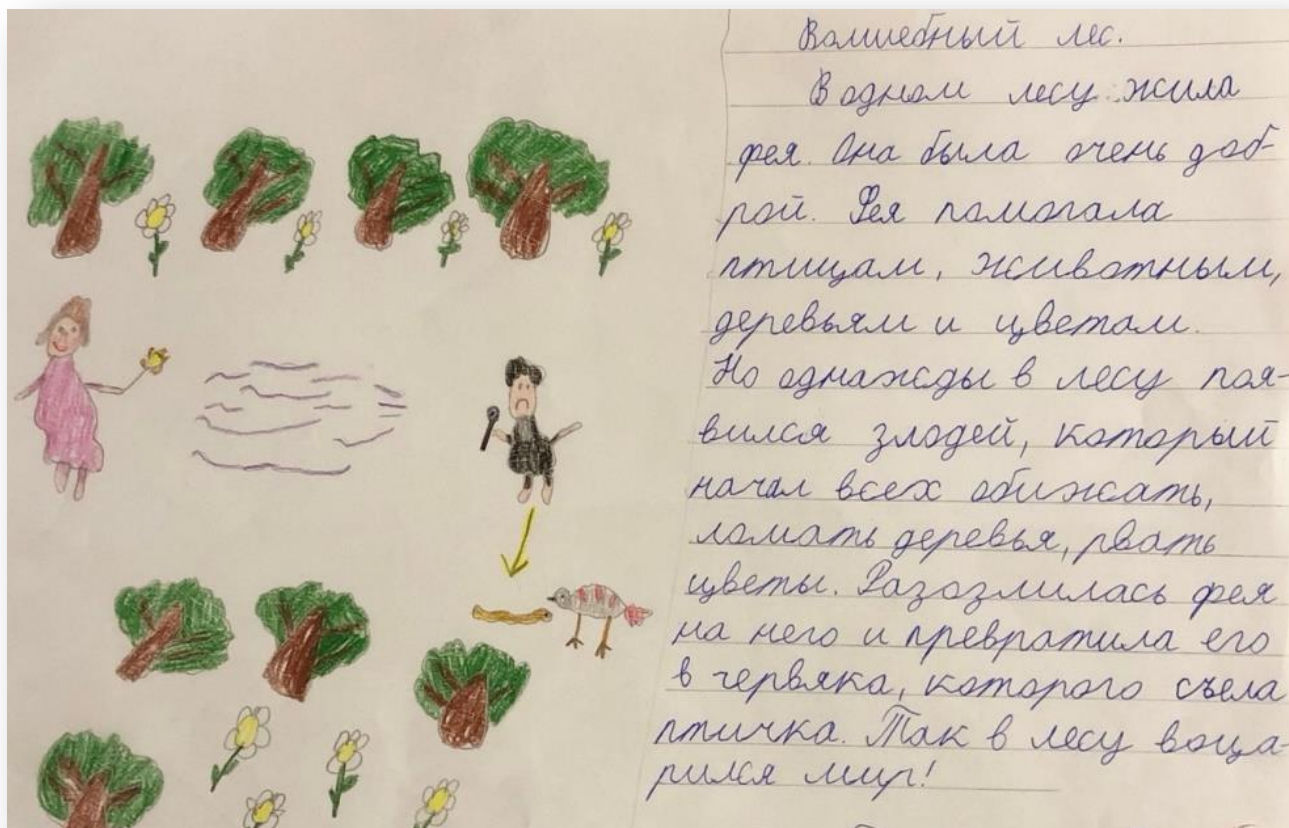 Волшебный лес.
В одном лесу жила
фея. Она была очень доб-
рой. Фея помогала
птицам, животным,
деревьям и цветам.
Но однажды в лесу поя-
вился злодей, который
начал всех обижать,
ломать деревья, рвать
цветы. Разозлилась фея
на него и превратила его
в червяка, которого съела
птичка. Так в лесу воца-
рился мир!